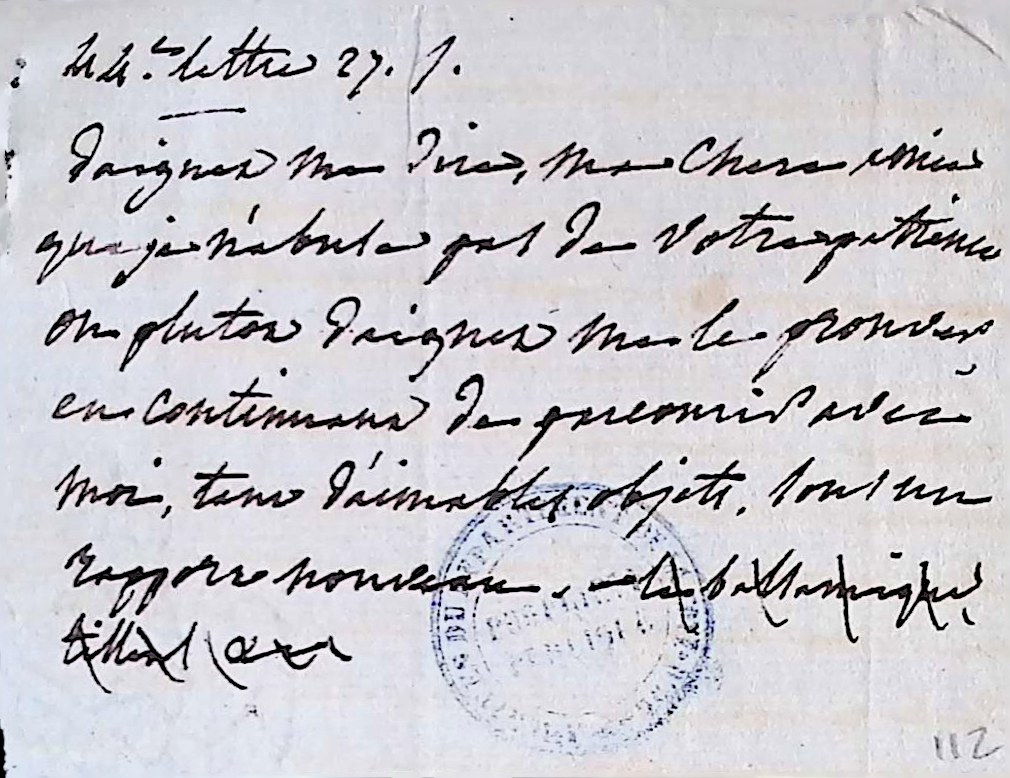 44.e lettre 27. f.
daignez me dire, ma chere amie
que je n'abuse pas de votre patience
ou plutot daignez me le prouver
en continuant de parcourir avec
moi, tant d'aimables objets, sous un
rapport nouveau. - la balsamique
112